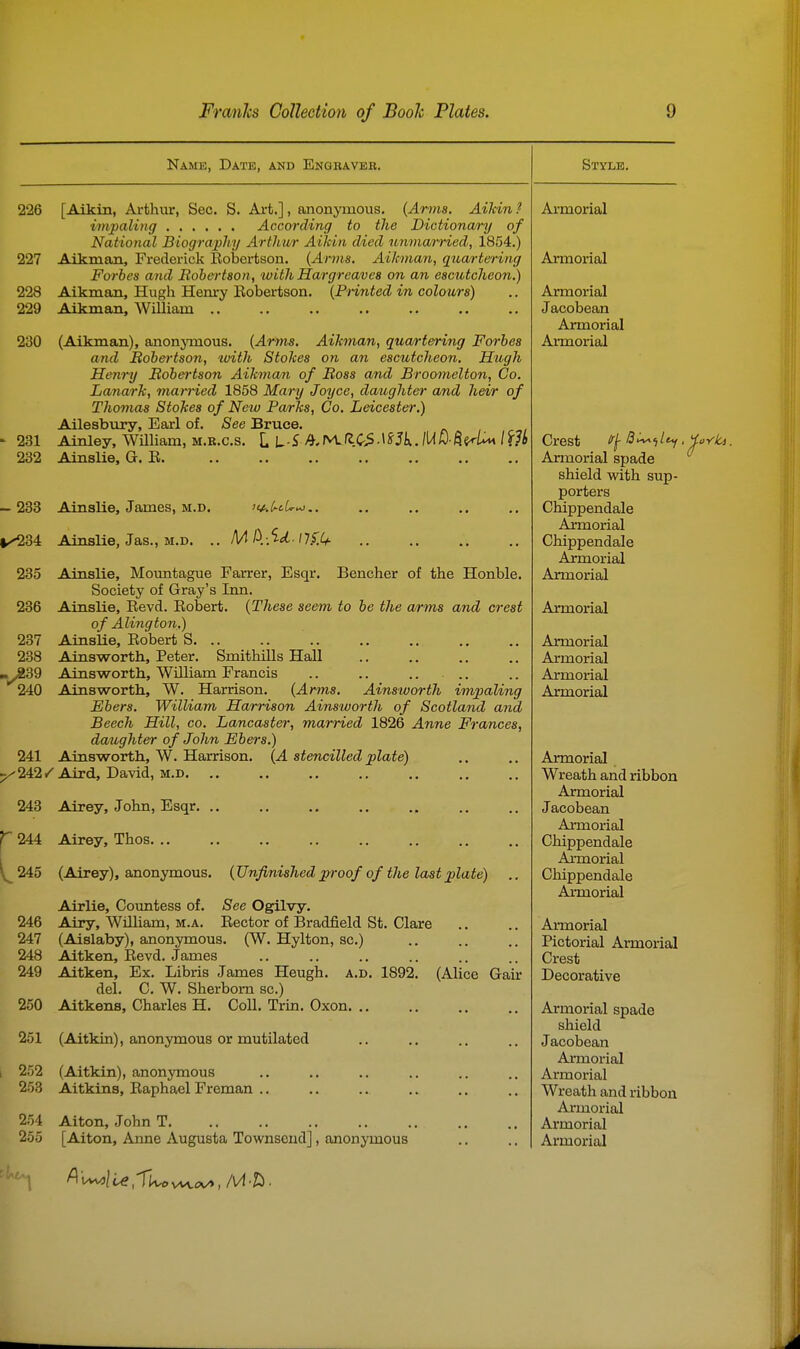 Franks Collection of Book Plates. 9
Name, Date, and Engraver. Style.
226 [Aikin, Arthur, Sec. S. Art.], anonymous. (Arms. Aikin? Armorial
impaling ...... According to the Dictionary of
National Biography Arthur Aikin died unmarried, 1854.)
227 Aikman, Frederick Robertson. (Arms. Aikman, quartering Armorial
Forbes and Robertson, with Hargreaves on an escutcheon.)
228 Aikman, Hugh Henry Robertson. (Printed in colours) .. Armorial
229 Aikman, William .. .. .. .. .. .. .. Jacobean
Armorial
230 (Aikman), anonymous. (Arms. Aikman, quartering Forbes Armorial
and Robertson, with Stokes on an escutcheon. Hugh
Henry Robertson Aikman of Ross and Broomelton, Co.
Lanark, married 1858 Mary Joyce, daughter and heir of
Thomas Stokes of New Parks, Co. Leicester.)
Ailesbury, Earl of. See Bruce.
231 Ainley, William, M.R.C.S. L.S.A. M.R.C.S. Crest of Bingley, Yorks.
232 Ainslie, G. R. .. .. .. .. .. .. .. Armorial spade
shield with sup-
porters
233 Ainslie, James, M.D. .. .. .. .. .. Chippendale
Armorial
234 Ainslie, Jas., M.D. .. M.D. .. .. .. .. Chippendale
Armorial
235 Ainslie, Mountague Farrer, Esqr. Bencher of the Honble. Armorial
Society of Gray's Inn.
236 Ainslie, Revd. Robert. (These seem to be the arms and crest Armorial
of Alington.)
237 Ainslie, Robert S. .. .. .. .. .. .. .. Armorial
238 Ainsworth, Peter. Smithills Hall .. .. .. .. Armorial
239 Ainsworth, William Francis .. .. .. .. .. Armorial
240 Ainsworth, W. Harrison. (Arms. Ainsworth impaling Armorial
Ebers. William Harrison Ainsworth of Scotland and
Beech Hill, co. Lancaster, married 1826 Anne Frances,
daughter of John Ebers.)
241 Ainsworth, W. Harrison. (A stencilled plate) .. .. Armorial
242 Aird, David, M.D. .. .. .. .. .. .. .. Wreath and ribbon
Armorial
243 Airey, John, Esqr. .. .. .. .. .. .. .. Jacobean
Armorial
244 Airey, Thos. .. .. .. .. .. .. .. .. Chippendale
Armorial
245 (Airey), anonymous. (Unfinished proof of the last plate) .. Chippendale
Armorial
Airlie, Countess of. See Ogilvy.
246 Airy, William, M.A. Rector of Bradfield St. Clare .. .. Armorial
247 (Aislaby), anonymous. (W. Hylton, sc.) .. .. .. Pictorial Armorial
248 Aitken, Revd. James .. .. .. .. .. .. Crest
249 Aitken, Ex. Libris James Heugh. A.D. 1892. (Alice Gair Decorative
del. C. W. Sherborn sc.)
250 Aitkens, Charles H. Coll. Trin. Oxon. .. .. .. .. Armorial spade
shield
251 (Aitkin), anonymous or mutilated .. .. .. .. Jacobean
Armorial
252 (Aitkin), anonymous .. .. .. .. .. .. Armorial
253 Aitkins, Raphael Freman .. .. .. .. .. .. Wreath and ribbon
Armorial
254 Aiton, John T. .. .. .. .. .. .. .. Armorial
255 [Aiton, Anne Augusta Townsend], anonymous .. .. Armorial
Ainslie, Thomas, M.D.